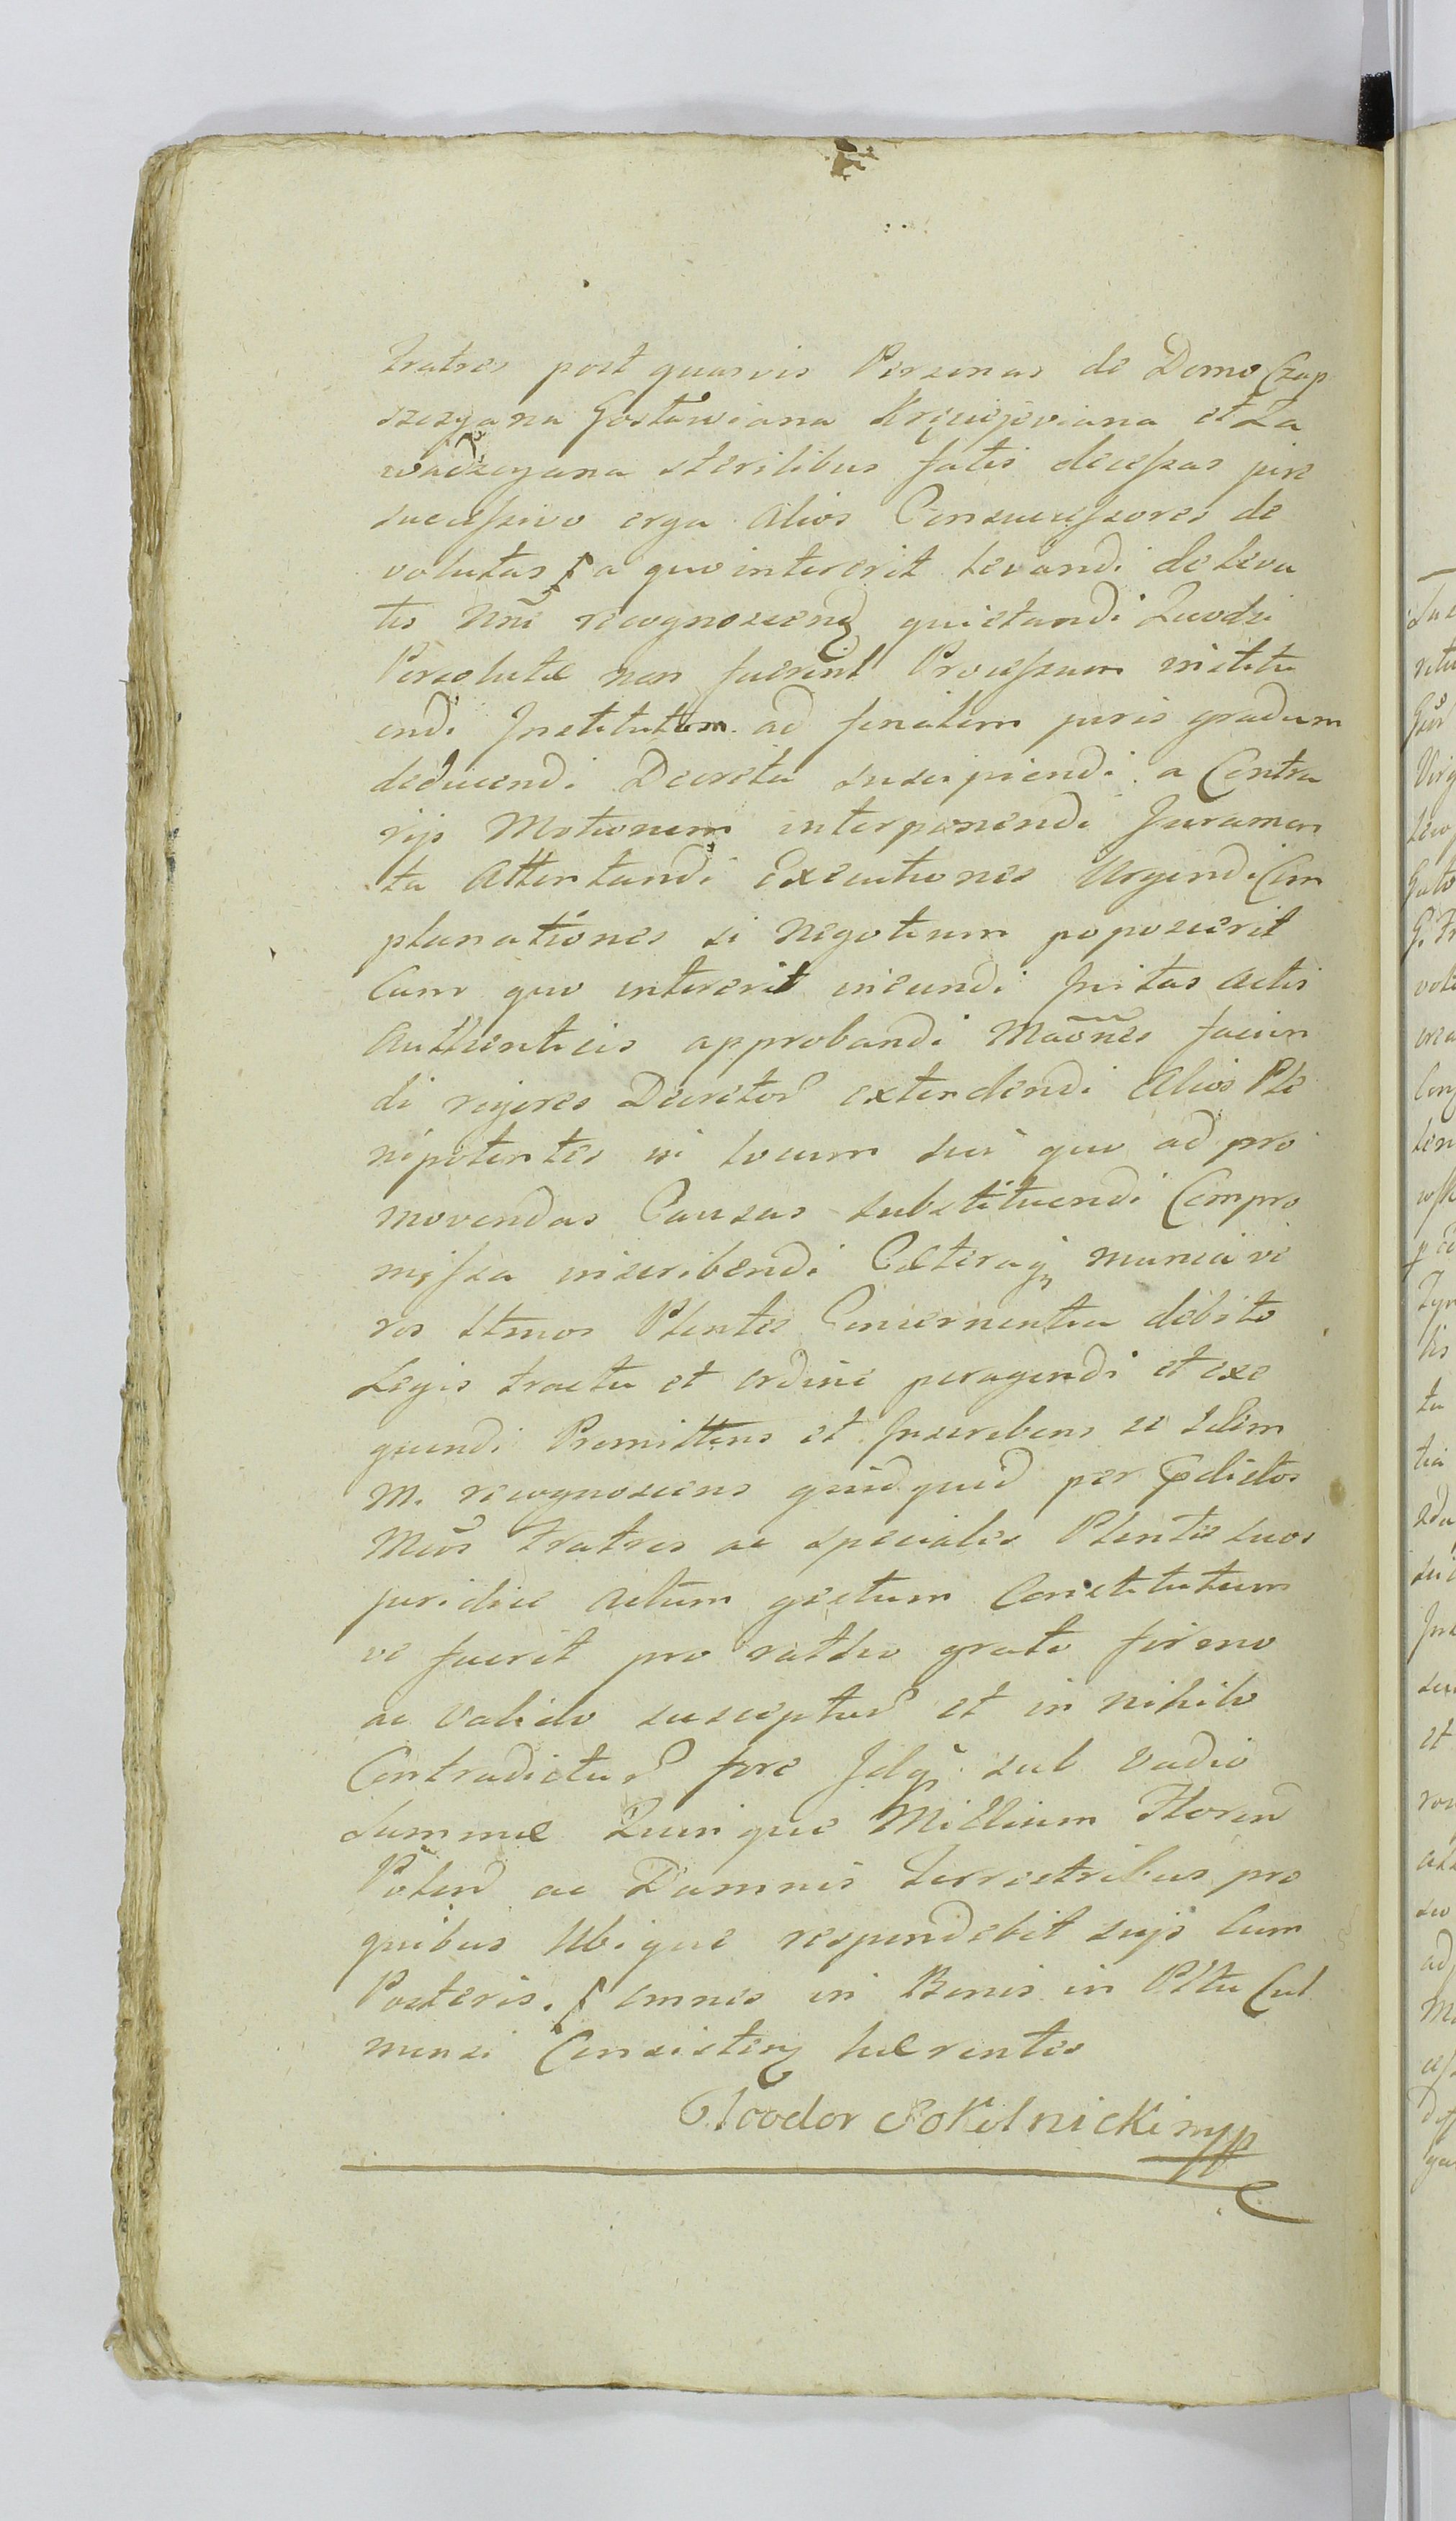 Fratres post quasvis Personas de Domo Czap
szczyana Gostawiana et Za
wadzcyana sterilibus fatis decessas jure
successivo erga alios Consuccessores de
volutas a quo intererit levandi de leva
tis nne recognoscend quietandi Quodsi
Persolutæ non fuerint Processum institu
endi Institutum ad finalem juris gradum
deducendi Decreta suscipiendi a Contra
rijs Motionem interponendi Juramen
ta Attentandi Executiones Urgendi Com
planationes si Negotium poposcerit
Cum quo intererit ineundi Initas actis
Authenticis approbandi Maones facien
di rigores Decretor extendendi Alios Ple
nipotentes in locum sui quo ad pro
movendas Causas substituendi Compro
missa inscribendi Cæteraq munia ve
ros Ltmos Plentes Concernentia debito
Legis tractu et ordine peragendi et exe
quendi Promittens et Inscribens se idem
M. recognoscens quidquid per Pdictos
Mcos Fratres ac speciales Plentes suos
juridice actum gestum Constitutum
ve fuerit pro ratho grato firmo
ac valido suscepturu et in nihilo
Contradictur fore Idq sub vadio
Summæ Quinque Millium Floren
Polon ac Damnis terrestribus pro
quibus Ubique respondebit suis cum
Posteris. omnes in Bonis in Pltu Cul
mensi Consisten hærentes
Teodor Sokolnicki mpp